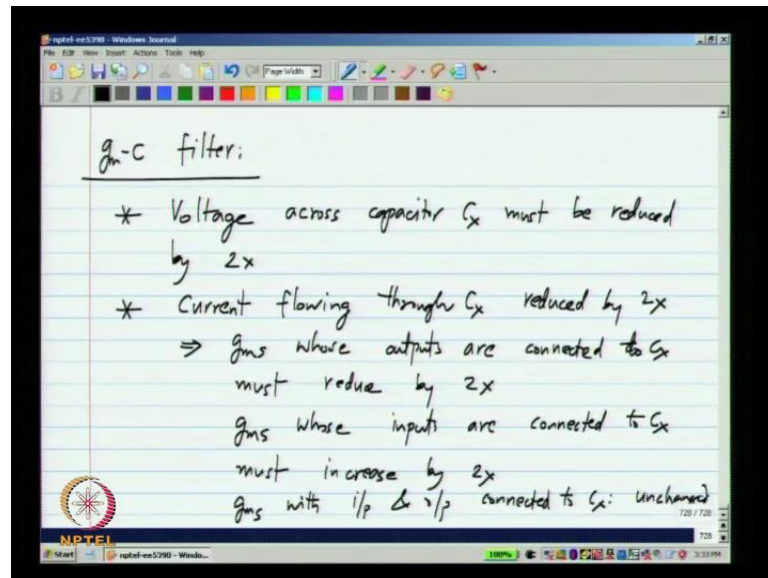 nptel-ee5390 - Windows Journal
File Edit View Insert Actions Tools Help
Page Width
B I
gm-C filter:
* Voltage across capacitor Cx must be reduced
by 2x
* Current flowing through Cx reduced by 2x
⇒ gms whose outputs are connected to Cx
must reduce by 2x
gms whose inputs are connected to Cx
must increase by 2x
gms with i/p & o/p connected to Cx: unchanged
728 / 728
728
NPTEL
Start nptel-ee5390 - Windo... 100% 3:33 PM